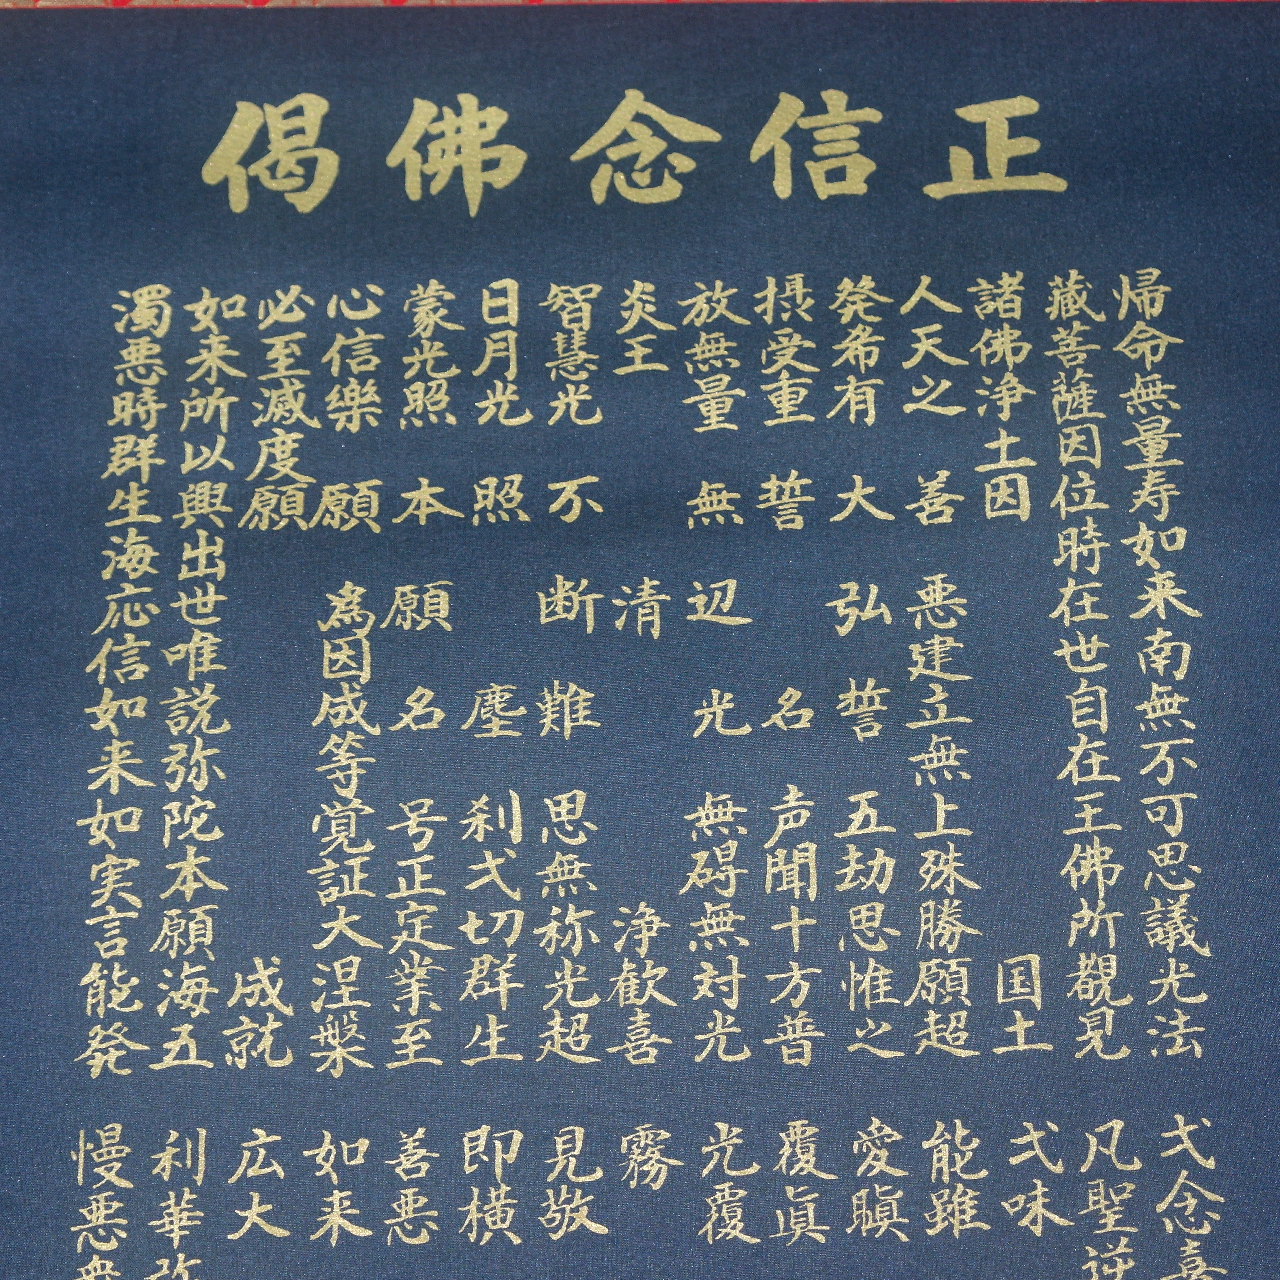 正信念佛偈
帰命無量寿如来南無不可思議光法
藏菩薩因位時在世自在王佛所覩見
諸佛浄土因国土
人天之善悪建立無上殊勝願超
発希有大弘誓五劫思惟之
摂受重誓名声聞十方普
放無量無辺光無碍無対光
炎王清浄歓喜
智慧光不断難思無称光超
日月光照塵刹弌切群生
蒙光照本願名号正定業至
心信樂願爲因成等覚証大涅槃
必至滅度願成就
如来所以興出世唯説弥陀本願海五
濁悪時群生海応信如来如実言能発
弌念喜
凡聖逆
弌味
能雖
愛瞋
覆眞
光覆
霧
見敬
即横
善悪
如来
広大
利華
慢悪